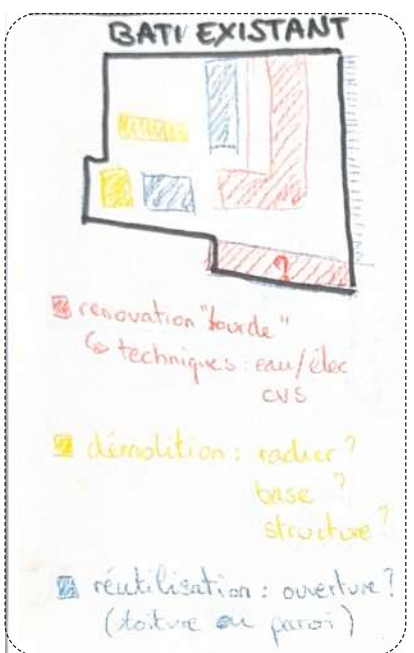 BATI EXISTANT
?
rénovation "lourde"
techniques : eau/élec
CVS
démolition : radier ?
base ?
structure ?
réutilisation : ouverture ?
(toiture ou paroi)